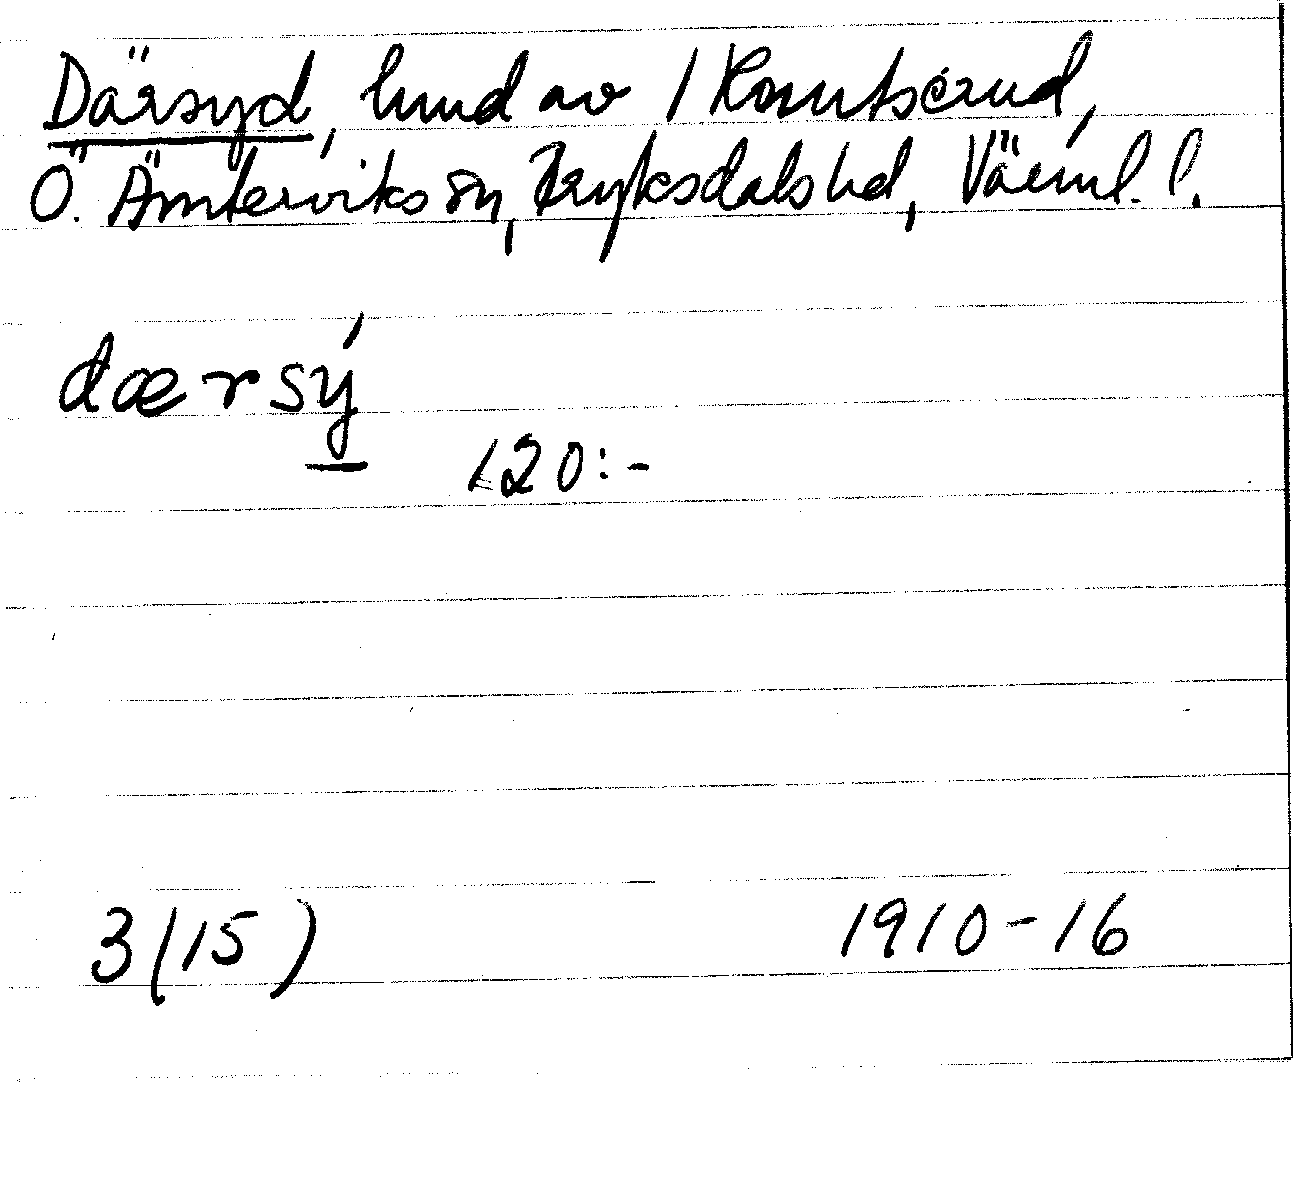 Därsyd, hmd av 1 Romtserud,
Ö. Ämterviks sn, Fryksdals hd, Värml. l.
dærsý
120:-
3(15) 1910-16